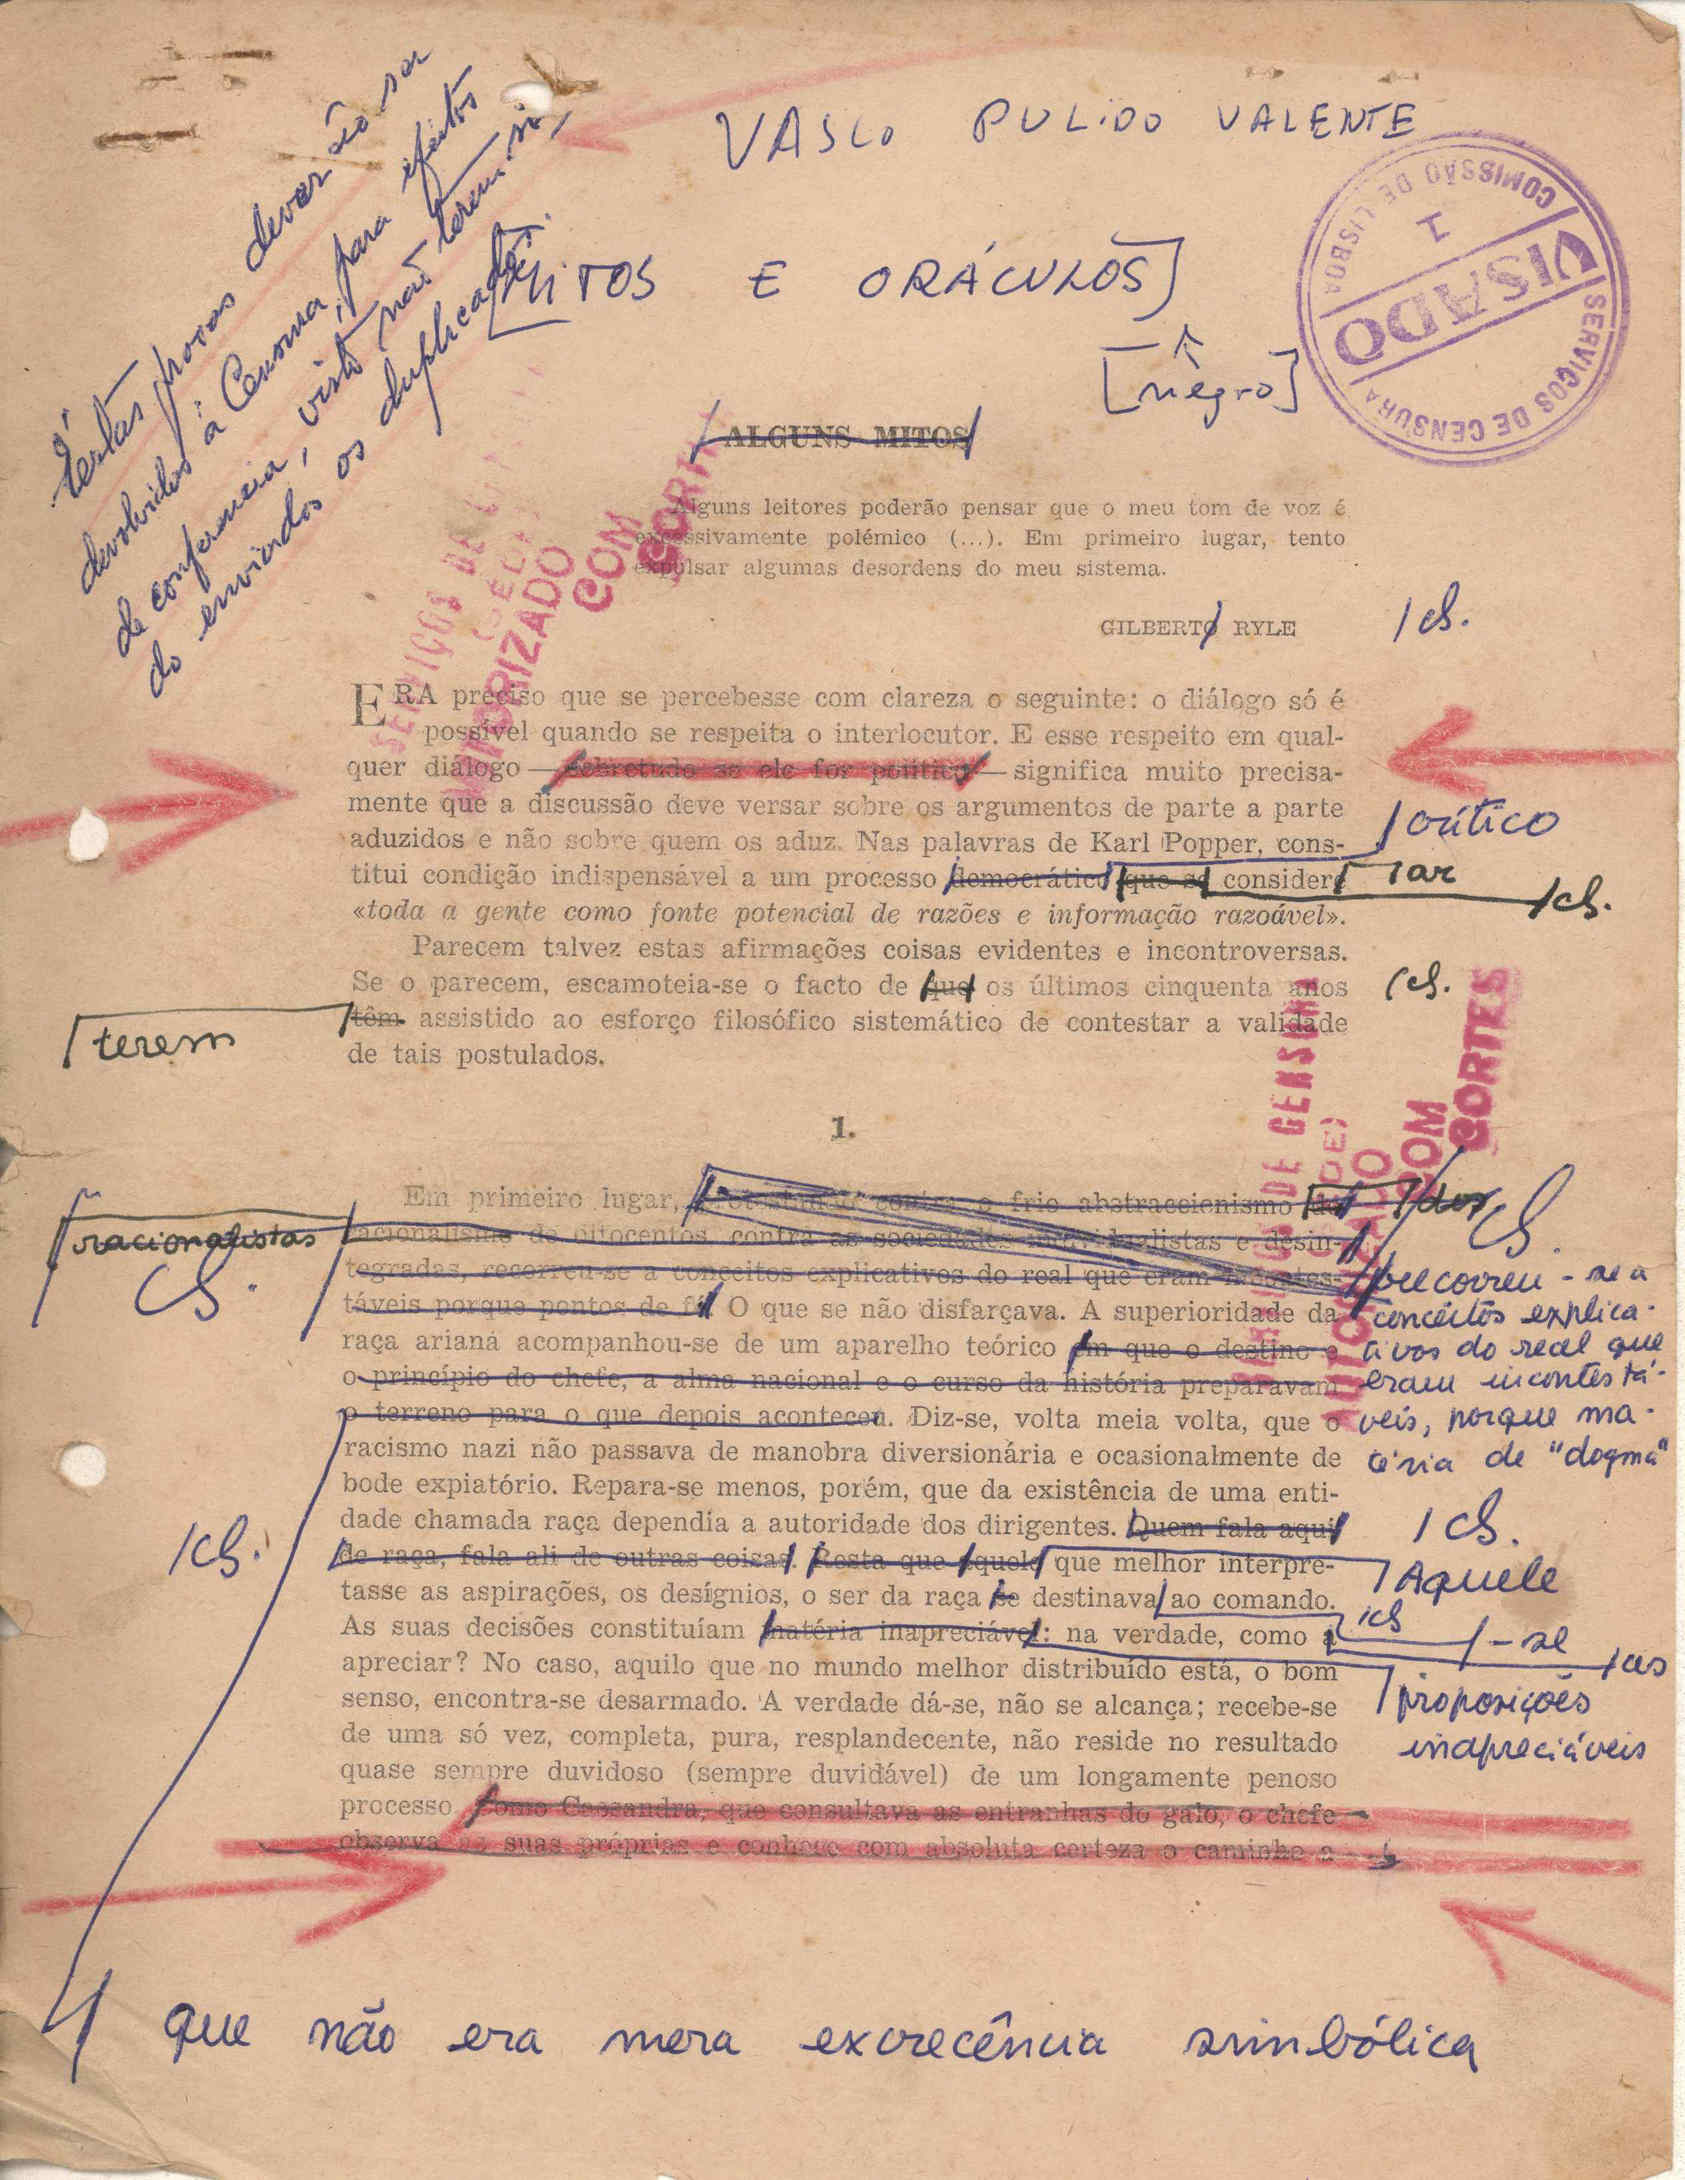 Estas provas deverão ser
devolvidas à Censura, para efeitos
de conferencia, visto não terem si-
do enviados os duplicados.
VASCO PULIDO VALENTE
[MITOS E ORÁCULOS]
[negro]
SERVIÇOS DE CENSURA
VISADO
1
COMISSÃO DE LISBOA
ALGUNS MITOS
AUTORIZADO
COM
CORTES
Alguns leitores poderão pensar que o meu tom de voz é
excessivamente polémico (...). Em primeiro lugar, tento
expulsar algumas desordens do meu sistema.
GILBERTO RYLE
ERA preciso que se percebesse com clareza o seguinte: o diálogo só é
possível quando se respeita o interlocutor. E esse respeito em qual-
quer diálogo — sobretudo se ele for político — significa muito precisa-
mente que a discussão deve versar sobre os argumentos de parte a parte
aduzidos e não sobre quem os aduz. Nas palavras de Karl Popper, cons-
crítico
titui condição indispensável a um processo democrático que se considere
ar
«toda a gente como fonte potencial de razões e informação razoável».
Parecem talvez estas afirmações coisas evidentes e incontroversas.
Se o parecem, escamoteia-se o facto de que os últimos cinquenta anos
terem
têm assistido ao esforço filosófico sistemático de contestar a validade
de tais postulados.
1.
SERVIÇOS DE CENSURA
AUTORIZADO
COM
CORTES
Em primeiro lugar, protestando contra o frio abstraccionismo do
dos
racionalistas
racionalismo de oitocentos, contra as sociedades individualistas e desin-
tegradas, recorreu-se a conceitos explicativos do real que eram incontes-
táveis porque pontos de fé. O que se não disfarçava. A superioridade da
recorreu-se a
conceitos explica-
tivos do real que
eram incontestá-
veis, porque ma-
téria de "dogma"
raça ariana acompanhou-se de um aparelho teórico em que o destino e
o princípio do chefe, a alma nacional e o curso da história preparavam
o terreno para o que depois aconteceu. Diz-se, volta meia volta, que o
racismo nazi não passava de manobra diversionária e ocasionalmente de
bode expiatório. Repara-se menos, porém, que da existência de uma enti-
dade chamada raça dependia a autoridade dos dirigentes. Quem fala aqui
de raça, fala ali de outras coisas. Resta que aquele que melhor interpre-
Aquele
tasse as aspirações, os desígnios, o ser da raça se destinava ao comando.
-se
As suas decisões constituíam matéria inapreciável: na verdade, como a
as
proposições
inapreciáveis
apreciar? No caso, aquilo que no mundo melhor distribuído está, o bom
senso, encontra-se desarmado. A verdade dá-se, não se alcança; recebe-se
de uma só vez, completa, pura, resplandecente, não reside no resultado
quase sempre duvidoso (sempre duvidável) de um longamente penoso
processo. Como Cassandra, que consultava as entranhas do galo, o chefe
observa as suas próprias e conhece com absoluta certeza o caminho a
que não era mera excrecência simbólica